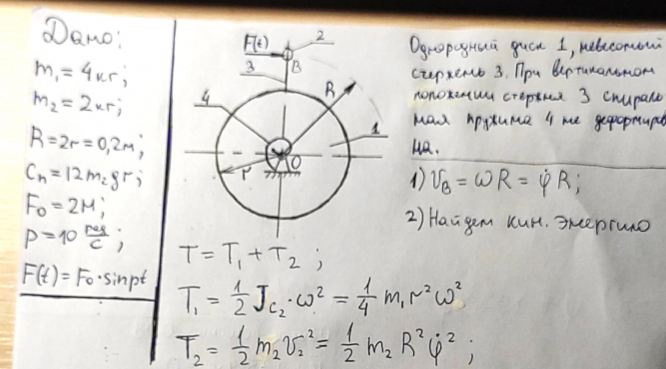 Дано:
m₁ = 4 кг;
m₂ = 2 кг;
R = 2r = 0,2м;
Cп = 12m₂gr;
F₀ = 2Н;
p = 10 рад/с;
F(t) = F₀·sinpt
F(t)
2
B
3
R
4
1
r
O
Однородный диск 1, невесомый
стержень 3. При вертикальном
положении стержня 3 спираль
ная пружина 4 не деформиров
на.
1) V_B = ωR = φ̇R;
2) Найдем кин. энергию
T = T₁ + T₂ ;
T₁ = 1/2 J_C₂·ω² = 1/4 m₁r²ω²
T₂ = 1/2 m₂V₂² = 1/2 m₂R²φ̇² ;